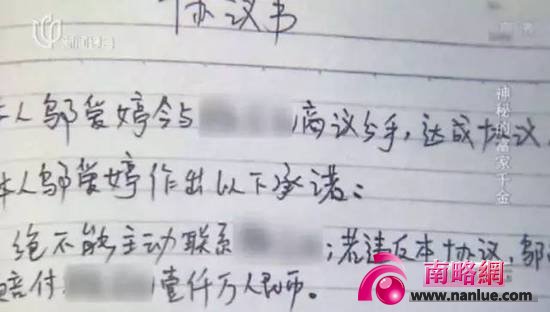 协议书
本人邬爱婷今与 商议分手,达成协议,
本人邬爱婷作出以下承诺:
绝不能主动联系 ;若违反本协议,邬
赔付 壹仟万人民币。
神秘的富家千金
南略網
www.nanlue.com